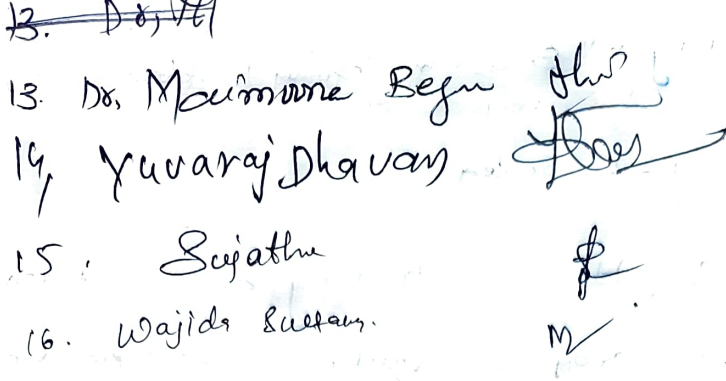 13. Dr,
13. Dr, Maimoone Begu
14, Yuvaraj Dhavan
15. Sujatha
16. Wajida Sultan.